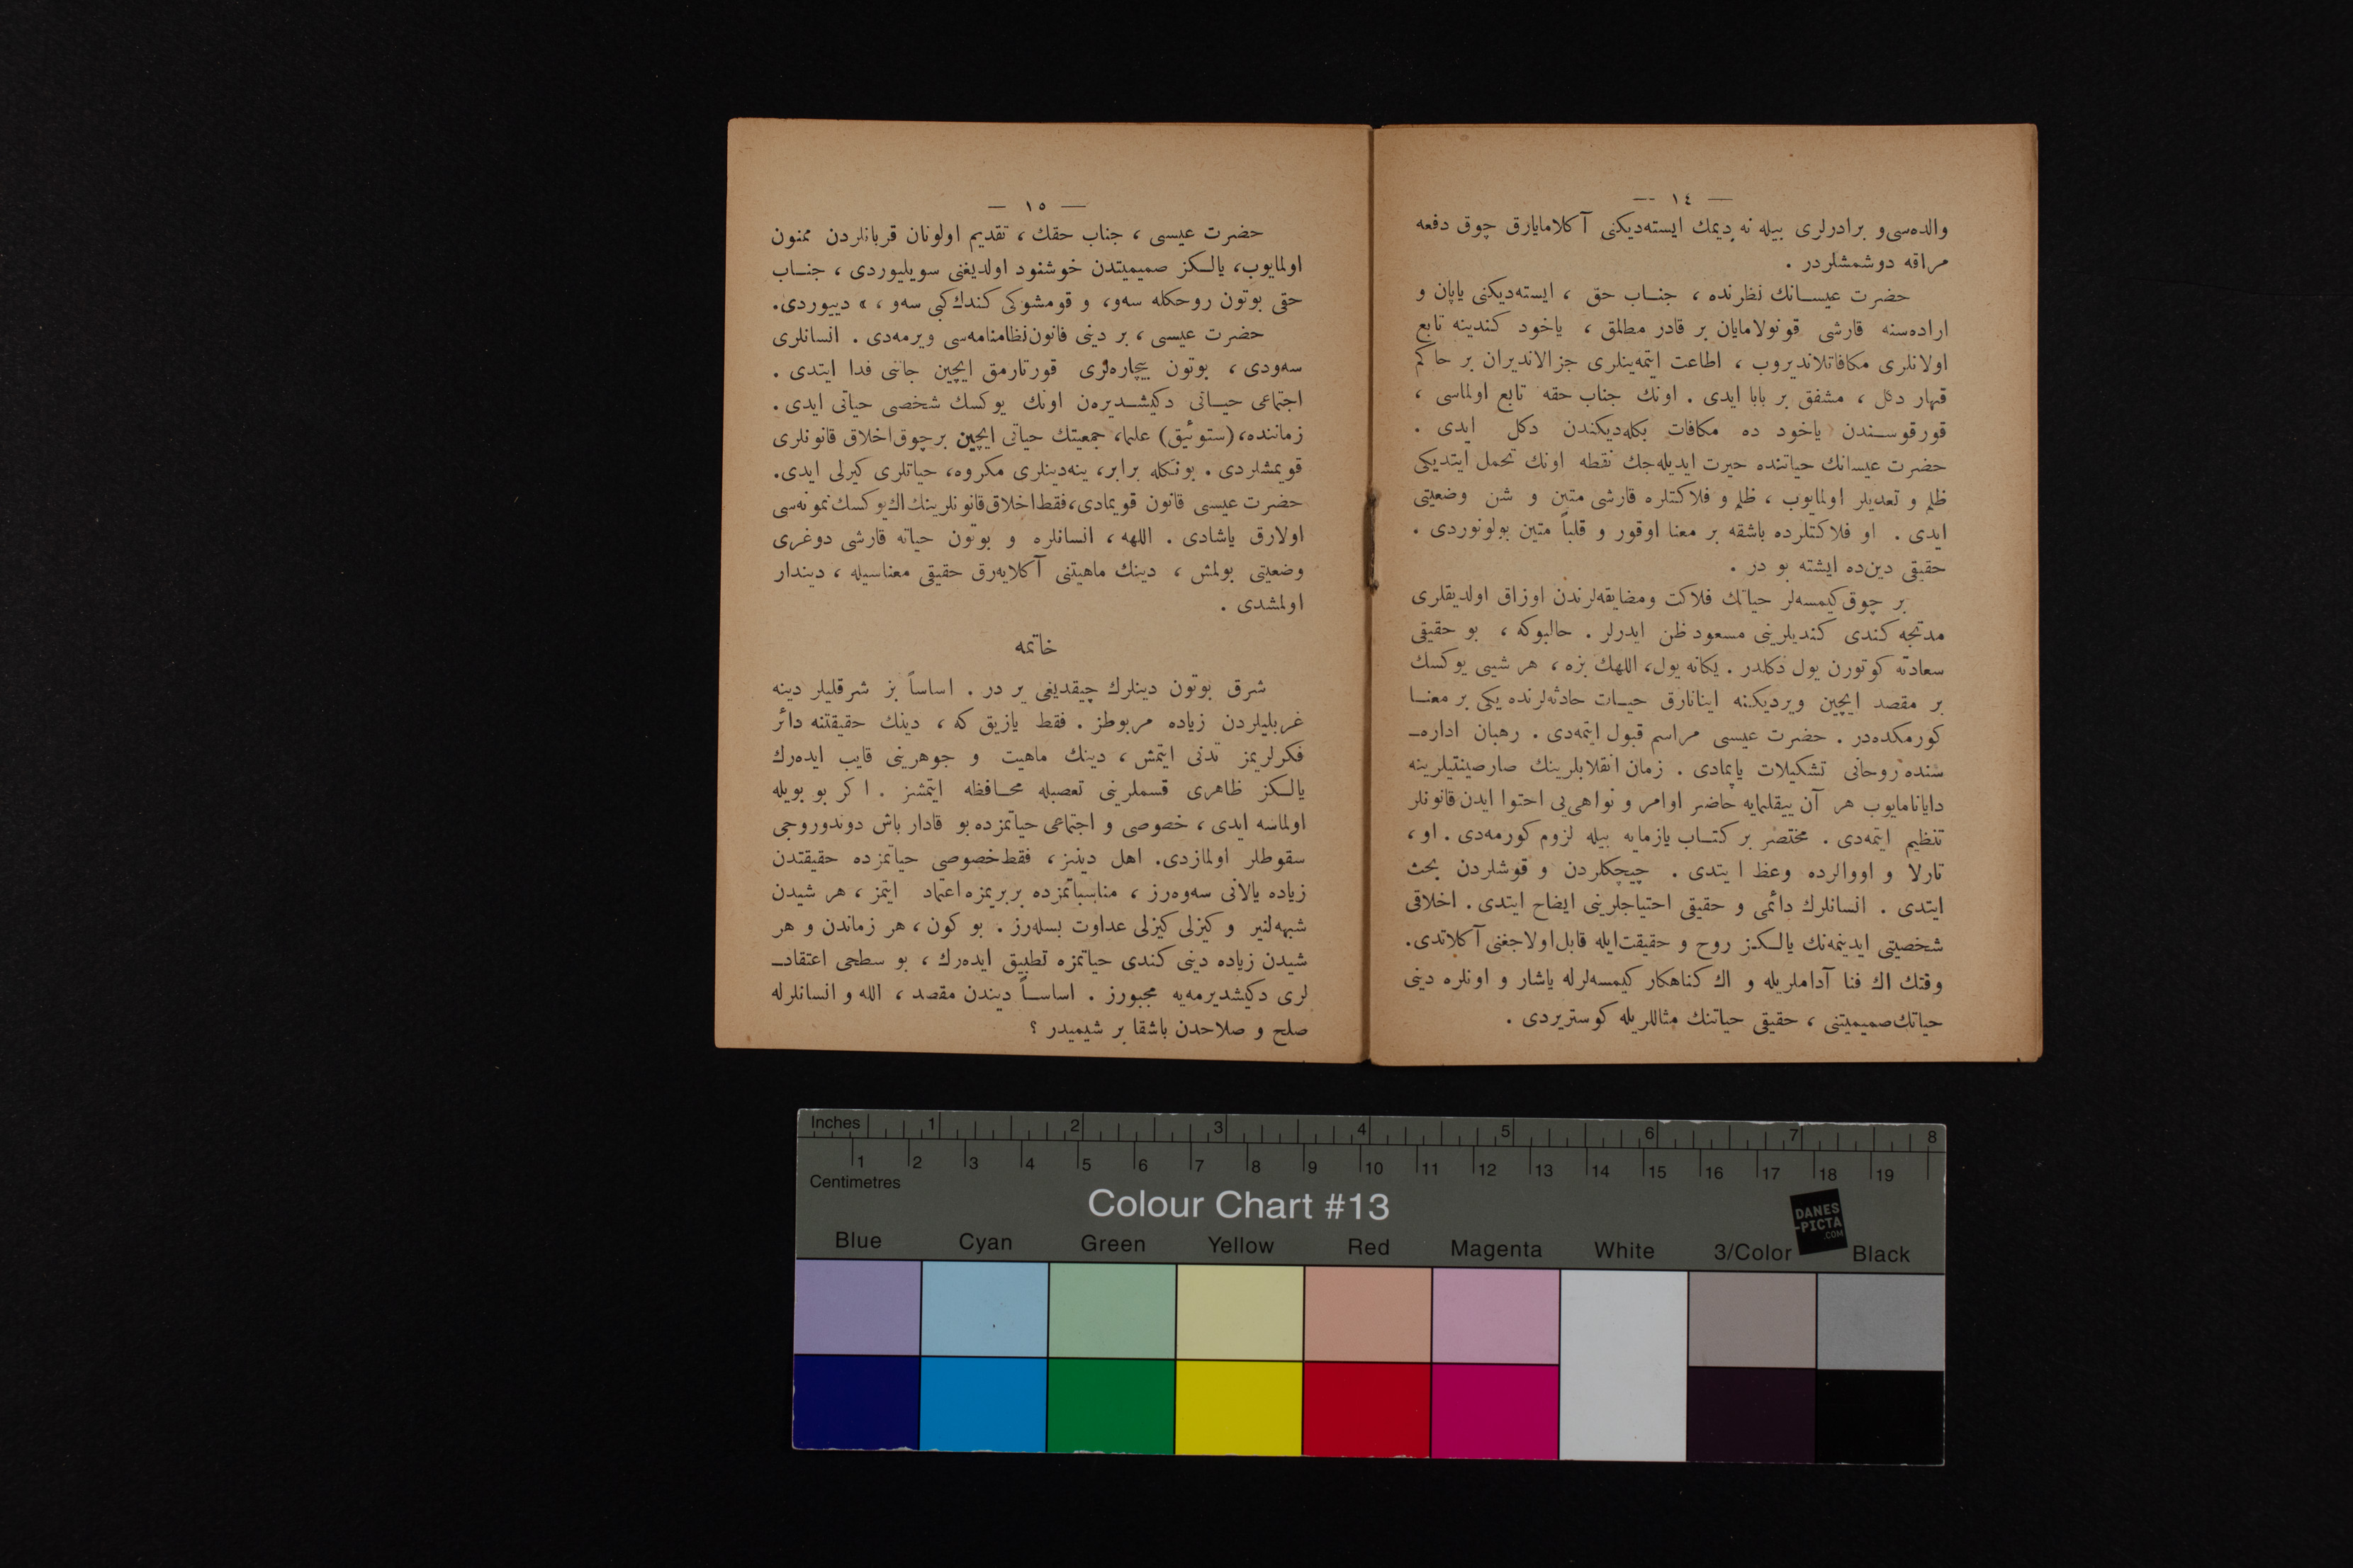 — ١٤ —
والده‌سی و برادرلری بیله نه دیمك ایسته‌دیكنی آكلامایارق چوق دفعه
مراقه دوشمشلردر .
حضرت عیســانك نظرنده ، جنــاب حق ، ایسته‌دیكنی یاپان و
اراده‌سنه قارشی قونولامایان بر قادر مطلق ، یاخود كندینه تابع
اولانلری مكافاتلاندیروب ، اطاعت ایتمه‌ینلری جزالاندیران بر حاكم
قهار دكل ، مشفق بر بابا ایدی . اونك جناب حقه تابع اولماسی ،
قورقوســندن یاخود ده مكافات بكله‌دیكندن دكل ایدی .
حضرت عیسانك حیاتنده حیرت ایدیله‌جك نقطه اونك تحمل ایتدیكی
ظلم و تعدیلر اولمایوب ، ظلم و فلاكتلره قارشی متین و شن وضعیتی
ایدی . او فلاكتلرده باشقه بر معنا اوقور و قلباً متین بولونوردی .
حقیقی دین‌ده ایشته بو در .
بر چوق كیمسه‌لر حیاتك فلاكت ومضایقه‌لرندن اوزاق اولدیقلری
مدتجه كندی كندیلرینی مسعود ظن ایدرلر . حالبوكه ، بو حقیقی
سعادته كوتورن یول دكلدر . یكانه یول، اللهك بزه ، هر شیی یوكسك
بر مقصد ایچین ویردیكنه اینانارق حیــات حادثه‌لرنده یكی بر معنــا
كورمكده‌در . حضرت عیسی مراسم قبول ایتمه‌دی . رهبان اداره‌ـ
سنده روحانی تشكیلات یاپمادی . زمان انقلابلرینك صارصینتیلرینه
دایانامایوب هر آن ییقلمایه حاضر اوامر و نواهی‌یی احتوا ایدن قانونلر
تنظیم ایتمه‌دی . مختصر بر كتــاب یازمایه بیله لزوم كورمه‌دی . او ،
تارلا و اووالرده وعظ ایتدی . چیچكلردن و قوشلردن بحث
ایتدی . انسانلرك دائمی و حقیقی احتیاجلرینی ایضاح ایتدی . اخلاقی
شخصیتی ایدینمه‌نك یالــكز روح و حقیقت‌ایله قابل‌اولاجغنی آكلاتدی.
وقتك اك فنا آداملریله و اك كناهكار كیمسه‌لرله یاشار و اونلره دینی
حیاتك صمیمیتنی ، حقیقی حیاتنك مثاللریله كوستریردی .
— ١٥ —
حضرت عیسی ، جناب حقك ، تقدیم اولونان قربانلردن ممنون
اولمایوب، یالــكز صمیمیتدن خوشنود اولدیغنی سویلیوردی ، جنــاب
حقی بوتون روحكله سه‌و، و قومشوكی كندك كبی سه‌و ، » دییوردی.
حضرت عیسی ، بر دینی قانون نظامنامه‌سی ویرمه‌دی . انسانلری
سه‌ودی ، بوتون بیچاره‌لری قورتارمق ایچین جاننی فدا ایتدی .
اجتماعی حیــاتی دكیشــدیره‌ن اونك یوكسك شخصی حیاتی ایدی .
زماننده، (ستوئیق) علما، جمعیتك حیاتی ایچین برچوق‌اخلاق قانونلری
قویمشلردی . بونكله برابر، ینه‌دینلری مكروه، حیاتلری كیرلی ایدی.
حضرت عیسی قانون قویمادی، فقط اخلاق قانونلرینك اك یوكسك نمونه‌سی
اولارق یاشادی . اللهه ، انسانلره و بوتون حیاته قارشی دوغری
وضعیتی بولمش ، دینك ماهیتنی آكلایه‌رق حقیقی معناسیله ، دیندار
اولمشدی .
خاتمه
شرق بوتون دینلرك چیقدیغی یر در . اساساً بز شرقلیلر دینه
غربلیلردن زیاده مربوطز . فقط یازیق كه ، دینك حقیقتنه دائر
فكرلریمز تدنی ایتمش ، دینك ماهیت و جوهرینی قایب ایده‌رك
یالــكز ظاهری قسملرینی تعصبله محــافظه ایتمشز . اكر بو بویله
اولماسه ایدی ، خصوصی و اجتماعی حیاتمزده بو قادار باش دوندوروجی
سقوطلر اولمازدی. اهل دینیز ، فقط خصوصی حیاتمزده حقیقتدن
زیاده یالانی سه‌وه‌رز ، مناسباتمزده بربریمزه اعتماد ایتمز ، هر شیدن
شبهه‌لنیر و كیزلی كیزلی عداوت بسله‌رز . بو كون ، هر زماندن و هر
شیدن زیاده دینی كندی حیاتمزه تطبیق ایده‌رك ، بو سطحی اعتقادـ
لری دكیشدیرمه‌یه مجبورز . اساســاً دیندن مقصد ، الله و انسانلرله
صلح و صلاحدن باشقا بر شیمیدر ؟
Inches 1 2 3 4 5 6 7 8
1 2 3 4 5 6 7 8 9 10 11 12 13 14 15 16 17 18 19
Centimetres
Colour Chart #13
DANES
-PICTA
.COM
Blue Cyan Green Yellow Red Magenta White 3/Color Black